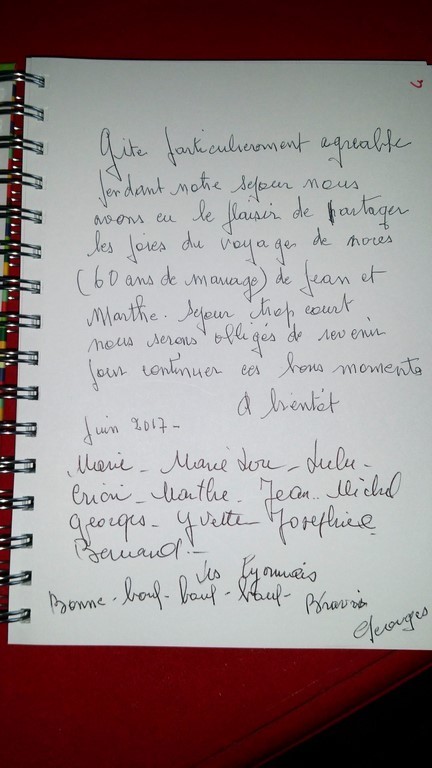 Gite particulierement agreable
pendant notre sejour nous
avons eu le plaisir de partager
les joies du voyages de noces
(60 ans de mariage) de Jean et
Marthe. Sejour trop court
nous serons obligés de revenir
pour continuer ces bons moments
A bientôt
Juin 2017-
Marie - Marie Lou - Lulu -
Marthe - Jean.. Michel
Georges - Yvette - Josephine
Bernard.-
Les Lyonnais
Bonne - boul - boul - boul -
Georges